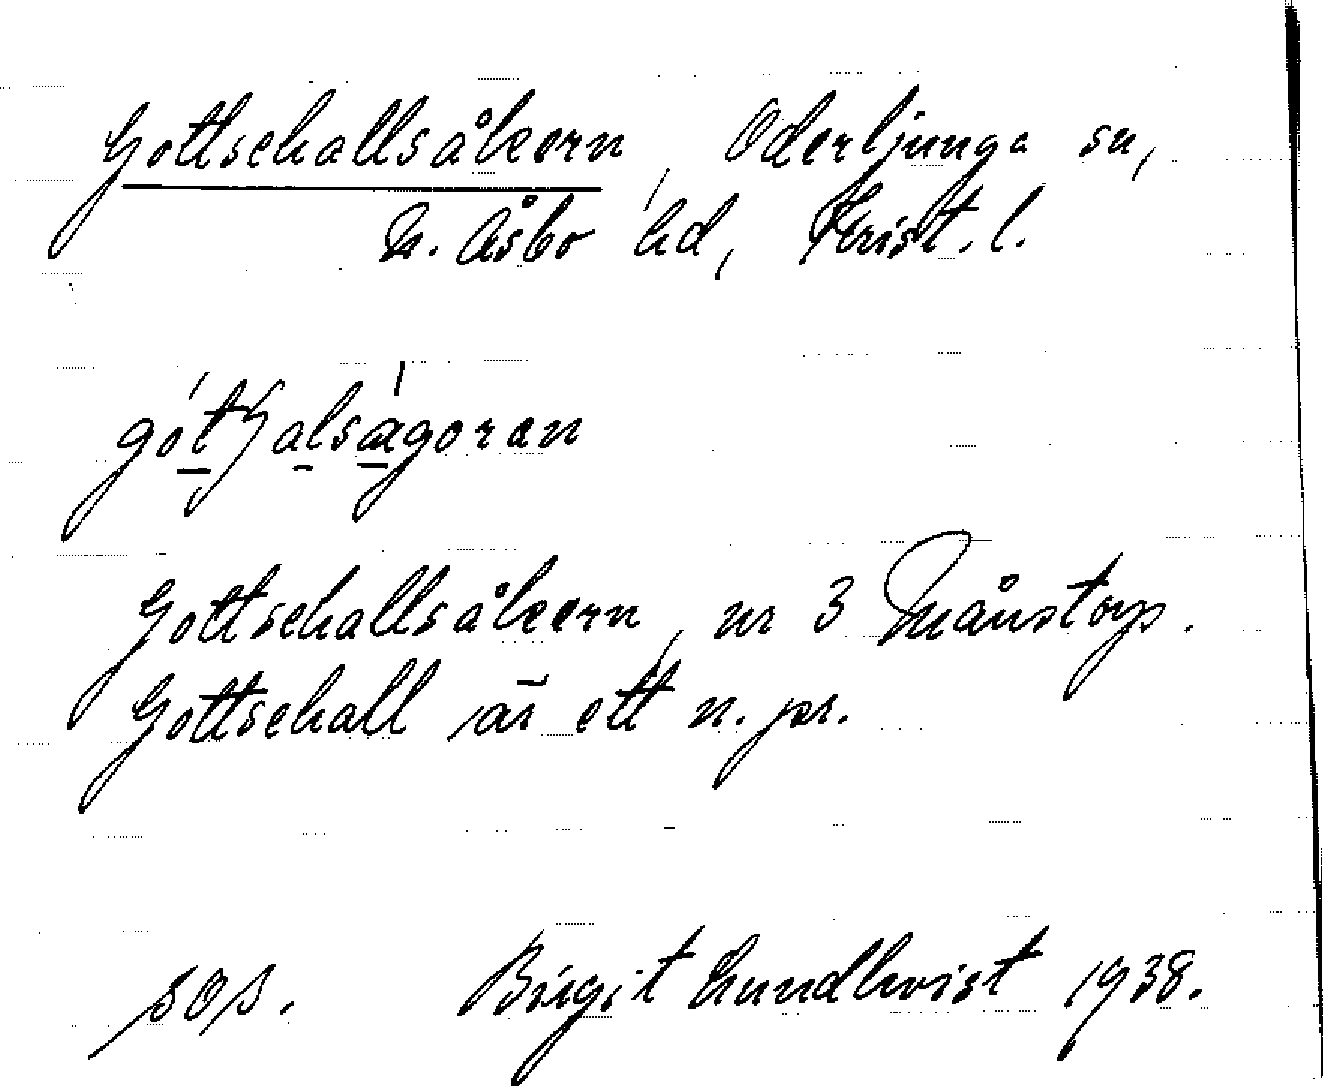 Gottschallsåkern, Oderljunga sn,
N. Åsbo hd, Krist. l.
Gottschallsåkern, nr 3 Månstorp.
Gottschall är ett n. pr.
Birgit Lundkvist 1938.